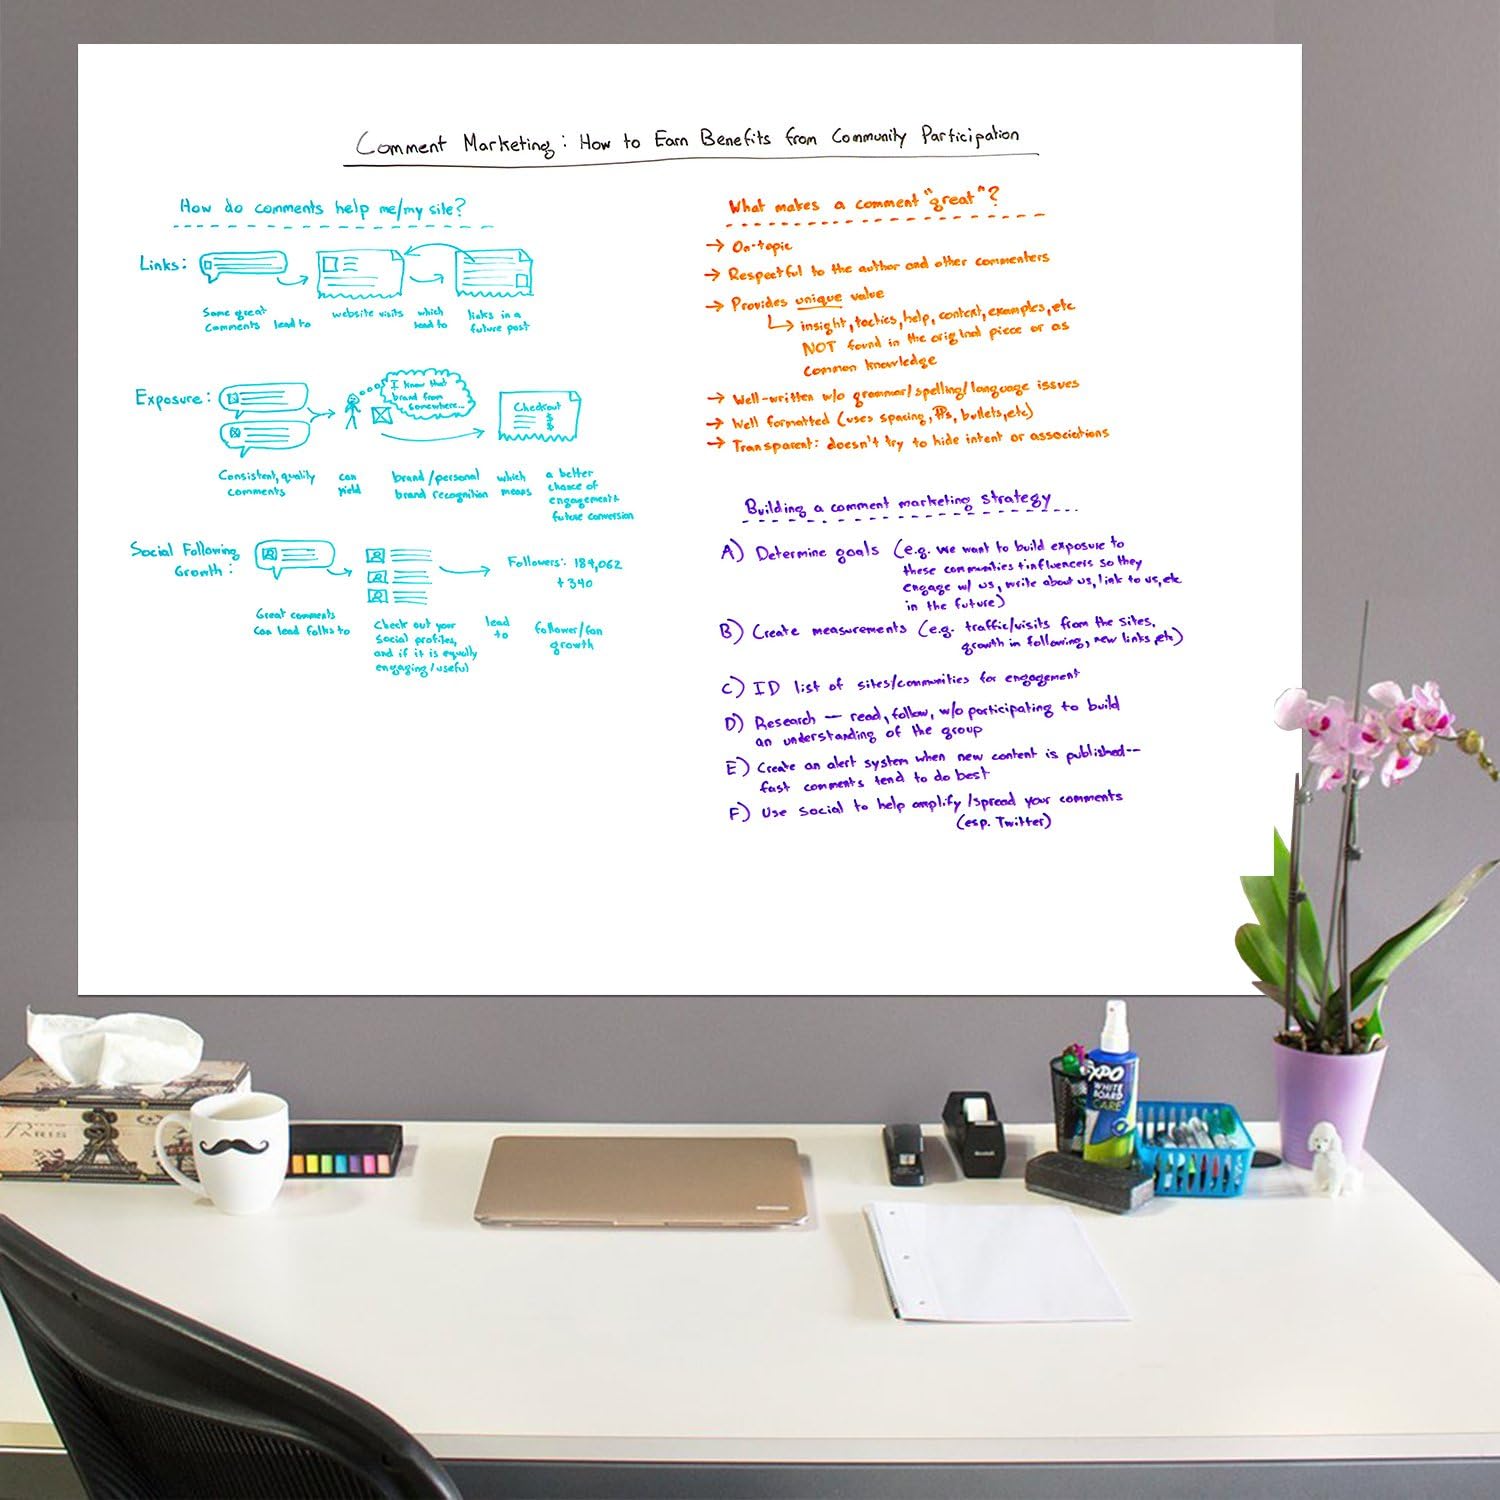 Comment Marketing: How to Earn Benefits from Community Participation
How do comments help me/my site?
Links:
Some great
comments lead to
website visits
which
lead to
links in a
future post
Exposure:
I know that
brand from
somewhere...
Checkout
$
$
$
Consistent, quality
comments
can
yield
brand/personal
brand recognition
which
means
a better
chance of
engagement+
future conversion
Social Following
Growth:
Followers: 184,062
+340
Great comments
can lead folks to
Check out your
social profiles,
and if it is equally
engaging/useful
lead
to
follower/fan
growth
What makes a comment "great"?
→ On-topic
→ Respectful to the author and other commenters
→ Provides unique value
↳ insight, tactics, help, content, examples, etc
NOT found in the original piece or as
common knowledge
→ Well-written w/o grammar/spelling/language issues
→ Well formatted (uses spacing, ¶s, bullets, etc)
→ Transparent: doesn't try to hide intent or associations
Building a comment marketing strategy
A) Determine goals (e.g. we want to build exposure to
these communities + influencers so they
engage w/ us, write about us, link to us, etc
in the future)
B) Create measurements (e.g. traffic/visits from the sites,
growth in following, new links, etc)
C) ID list of sites/communities for engagement
D) Research — read, follow, w/o participating to build
an understanding of the group
E) Create an alert system when new content is published--
fast comments tend to do best
F) Use Social to help amplify/spread your comments
(esp. Twitter)
PARIS
EXPO
WHITE
BOARD
CARE
Scotch